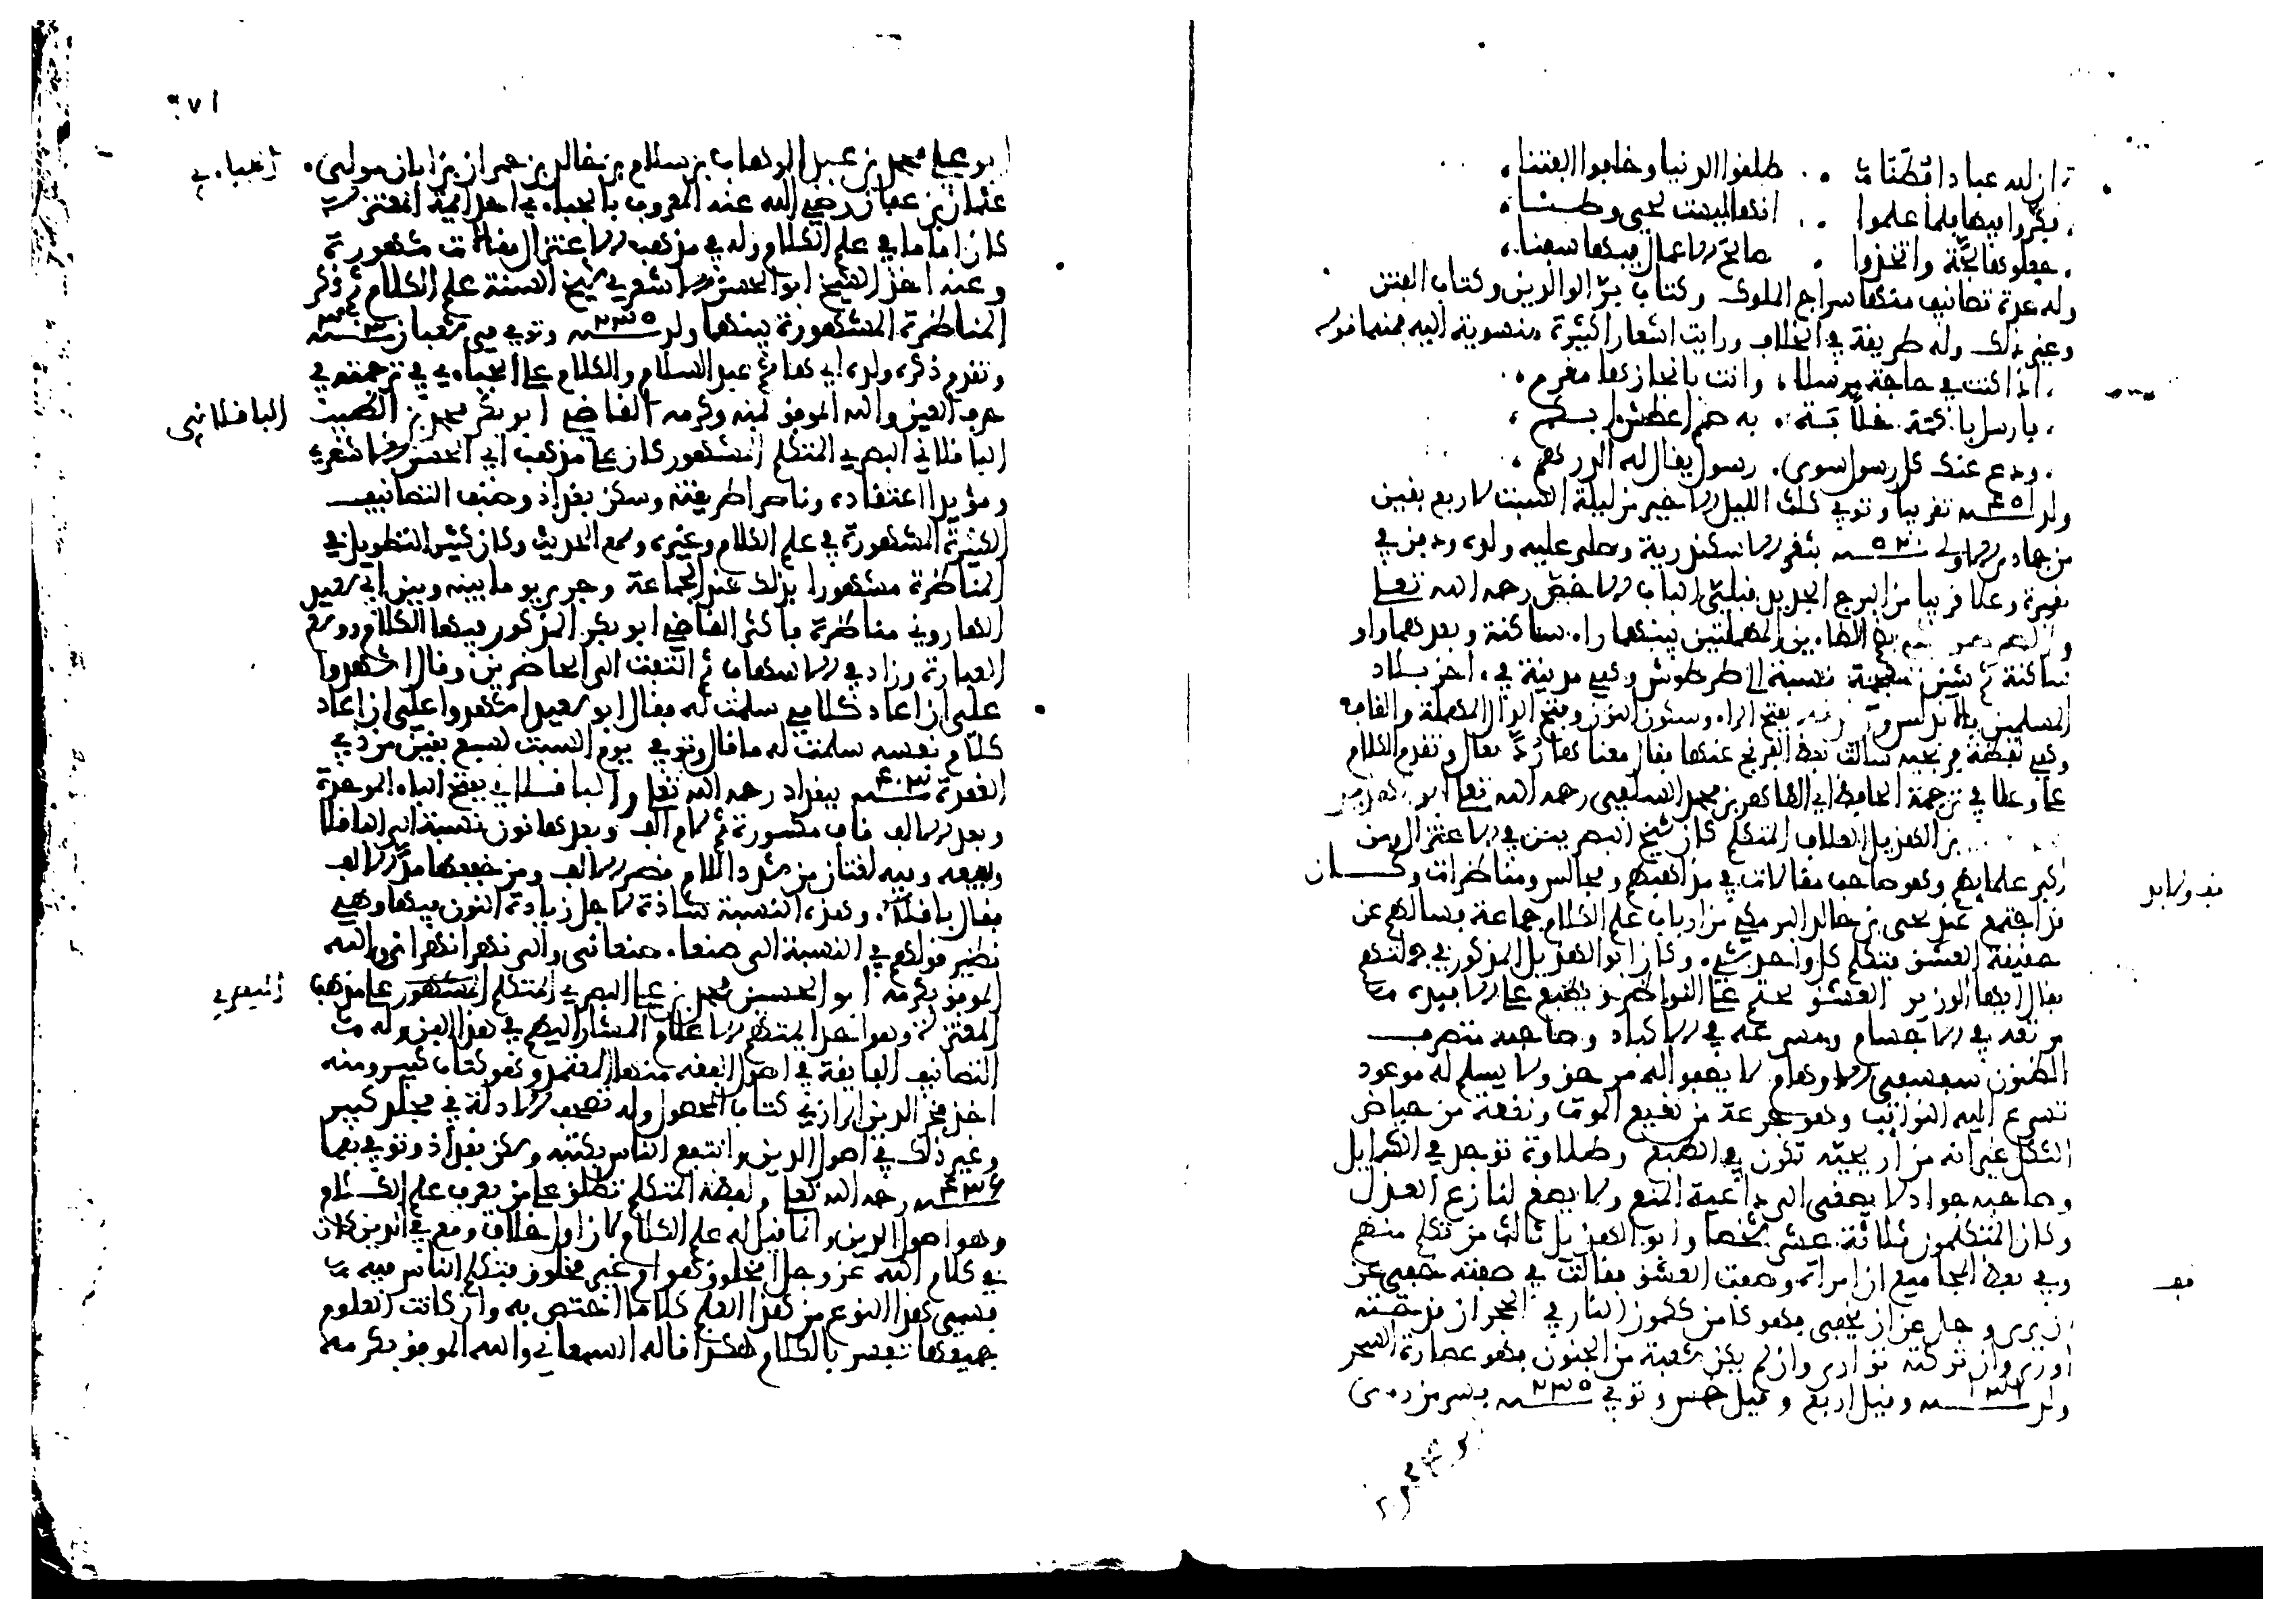 ان لله عبادا فطنا طلقوا الدنيا وخافوا الفتنا
فكروا فيها فلما علموا انها ليست لحي وطنا
جعلوها لجة واتخذوا صالح الاعمال فيها سفنا
وله عدة تصانيف منها سراج الملوك وكتاب بر الوالدين وكتاب الفتن
وغير ذلك وله طريقة في الخلاف ورايت اشعارا كثيرة منسوبة اليه فمنها قوله
اذا كنت في حاجة مرسلا وانت بانجازها مغرم
فارسل باكمه خلابة به صمم اغطش ابكم
ودع عنك كل رسول سوى رسول يقال له الدرهم
ولد سنة ٤٥١ تقريبا وتوفي ثلث الليل الاخير من ليلة السبت لاربع بقين
من جمادى الاولى سنة ٥٢٠ بثغر الاسكندرية وصلى عليه ولده ودفن في
مقبرة وعلا قريبا من البرج الجديد قبلي الباب الاخضر رحمه الله تعلى
بضم الطاءين المهملتين بينهما راء ساكنة وبعدهما واو
ساكنة ثم شين معجمة نسبة الى طرطوش وهي مدينة في اخر بلاد
المسلمين بالاندلس بفتح الراء وسكون النون وفتح الدال المهملة والقاف
وهي لفظة فرنجية سالت بعض الفرنج عنها فقال معناها رد تعال وتقدم الكلام
على وعلا في ترجمة الحافظ ابي الطاهر بن محمد السلفي رحمه الله تعلى
بن الهذيل العلاف المتكلم كان شيخ البصريين في الاعتزال ومن
اكبر علمايهم وهو صاحب مقالات في مذهبهم ومجالس ومناظرات وكان
قد اجتمع عند يحيى بن خالد البرمكي من ارباب علم الكلام جماعة فسالهم عن
حقيقة العشق فتكلم كل واحد بشيء وكان ابو الهذيل المذكور في جملتهم
فقال ايها الوزير العشق يختم على النواظر ويطبع على الافيدة
مرتعه في الاجساد ومشرعه في الاكباد وصاحبه متصرف
الظنون متفنن الاوهام لا يصفوا له مرجو ولا يسلم له موعود
تسرع اليه النوائب وهو جرعة من نقيع الموت ونقعة من حياض
الثكل غير انه من اريحية تكون في الطبع وطلاوة توجد في الشمايل
وصاحبه جواد لا يصغى الى داعية المنع ولا يصغ لنازع العذل
وكان المتكلمون ثلاثة عشر شخصا وابو الهذيل ثالث من تكلم منهم
وفي بعض المجاميع ان امراة وصفت العشق فقالت في صفته خفي عن
ان يرى وجل عن ان يخفى فهو كامن ككمون النار في الحجر ان قدحته
اورى وان تركته توارى وان لم يكن شعبة من الجنون فهو عصارة السحر
ولد سنة ١٣١ وقيل اربع وقيل خمس وتوفي سنة ٢٣٥ بسر من رءى
٩٧١
الجباءي
ابو علي محمد بن عبد الوهاب بن سلام بن خالد بن حمران بن ابان مولى
عثمان بن عفان رضي الله عنه المعروف بالجباءي احد ايمة المعتزلة
كان اماما في علم الكلام وله في مذهب الاعتزال مقالات مشهورة
وعنه اخذ الشيخ ابو الحسن الاشعري شيخ السنة علم الكلام ثم ذكر
المناظرة المشهورة بينهما ولد سنة ٢٣٥ وتوفي في شعبان سنة ٣٠٣
وتقدم ذكر ولده ابي هاشم عبد السلام والكلام على الجباءي في ترجمته في
حرف العين والله الموفق لمنه وكرمه القاضي ابو بكر محمد بن الطيب
الباقلاني
الباقلاني البصري المتكلم المشهور كان على مذهب ابي الحسن الاشعري
ومؤيدا اعتقاده وناصرا طريقته وسكن بغداذ وصنف التصانيف
الكثيرة المشهورة في علم الكلام وغيره وسمع الحديث وكان كثير التطويل في
المناظرة مشهورا بذلك عند الجماعة وجرى يوما بينه وبين ابي سعيد
الهاروني مناظرة فاكثر القاضي ابو بكر المذكور فيها الكلام ووسع
العبارة وزاد في الاسهاب ثم التفت الى الحاضرين وقال اشهدوا
على ان اعاد كلامي سلمت له فقال ابو سعيد اشهدوا على ان اعاد
كلام نفسه سلمت له ما قال وتوفي يوم السبت لسبع بقين من ذي
القعدة سنة ٤٠٣ ببغداد رحمه الله تعلى والباقلاني بفتح الباء الموحدة
وبعد الالف قاف مكسورة ثم لام الف وبعدها نون نسبة الى الباقلا
وبيعه وفيه لغتان من شدد اللام قصر الالف ومن خففها مد الالف
فقال باقلاء وهذه النسبة شاذة لاجل زيادة النون فيها وهي
نظير قولهم في النسبة الى صنعاء صنعاني والى بهرا بهراني والله
الموفق بكرمه ابو الحسين محمد بن علي البصري المتكلم المشهور على مذهب
البصري
المعتزلة وهو احد ايمتهم الاعلام المشار اليهم في هذا الفن وله
التصانيف الفايقة في اصول الفقه منها المعتمد وهو كتاب كبير ومنه
اخذ فخر الدين الرازي كتاب المحصول وله تصفح الادلة في مجلد كبير
وغير ذلك في اصول الدين وانتفع الناس بكتبه وسكن بغداذ وتوفي بها
سنة ٤٣٦ رحمه الله تعلى ولفظة المتكلم تطلق على من يعرف علم الكلام
وهو اصول الدين وانما قيل له علم الكلام لان اول خلاف وقع في الدين كان
في كلام الله عز وجل امخلوق هو ام غير مخلوق فتكلم الناس فيه
فسمى هذا النوع من هذا العلم كلاما اختص به وان كانت العلوم
جميعها تنشر بالكلام هكذا قاله السمعاني والله الموفق بكرمه